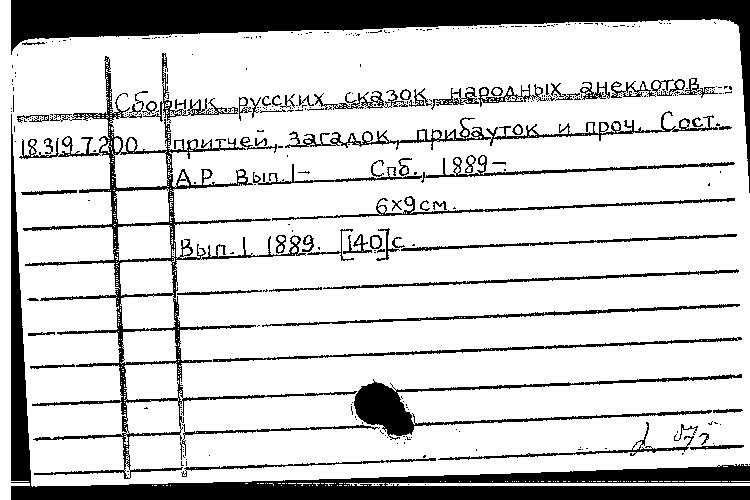 Сборник русских сказок, народных анекдотов,
18.319.7.200. притчей, загадок, прибауток и проч. Сост.
А.Р. Вып.1– Спб., 1889–
6х9см.
Вып.1. 1889. [140]с.